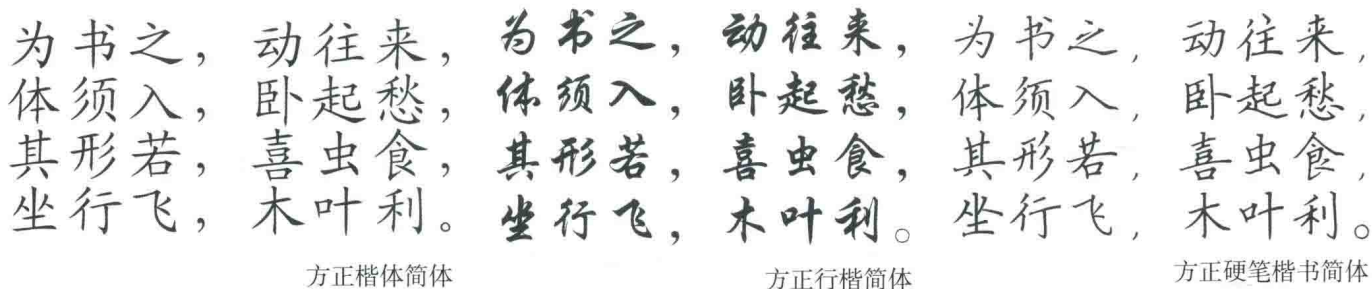 为书之，动往来，
体须入，卧起愁，
其形若，喜虫食，
坐行飞，木叶利。
方正楷体简体
为书之，动往来，
体须入，卧起愁，
其形若，喜虫食，
坐行飞，木叶利。
方正行楷简体
为书之，动往来，
体须入，卧起愁，
其形若，喜虫食，
坐行飞，木叶利。
方正硬笔楷书简体